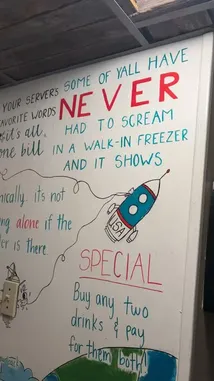 YOUR SERVERS
FAVORITE WORDS
"it's all
one bill
SOME OF YALL HAVE
NEVER
HAD TO SCREAM
IN A WALK-IN FREEZER
AND IT SHOWS
it's not
alone if the
is there.
USA
SPECIAL
Buy any two
drinks & pay
for them both!